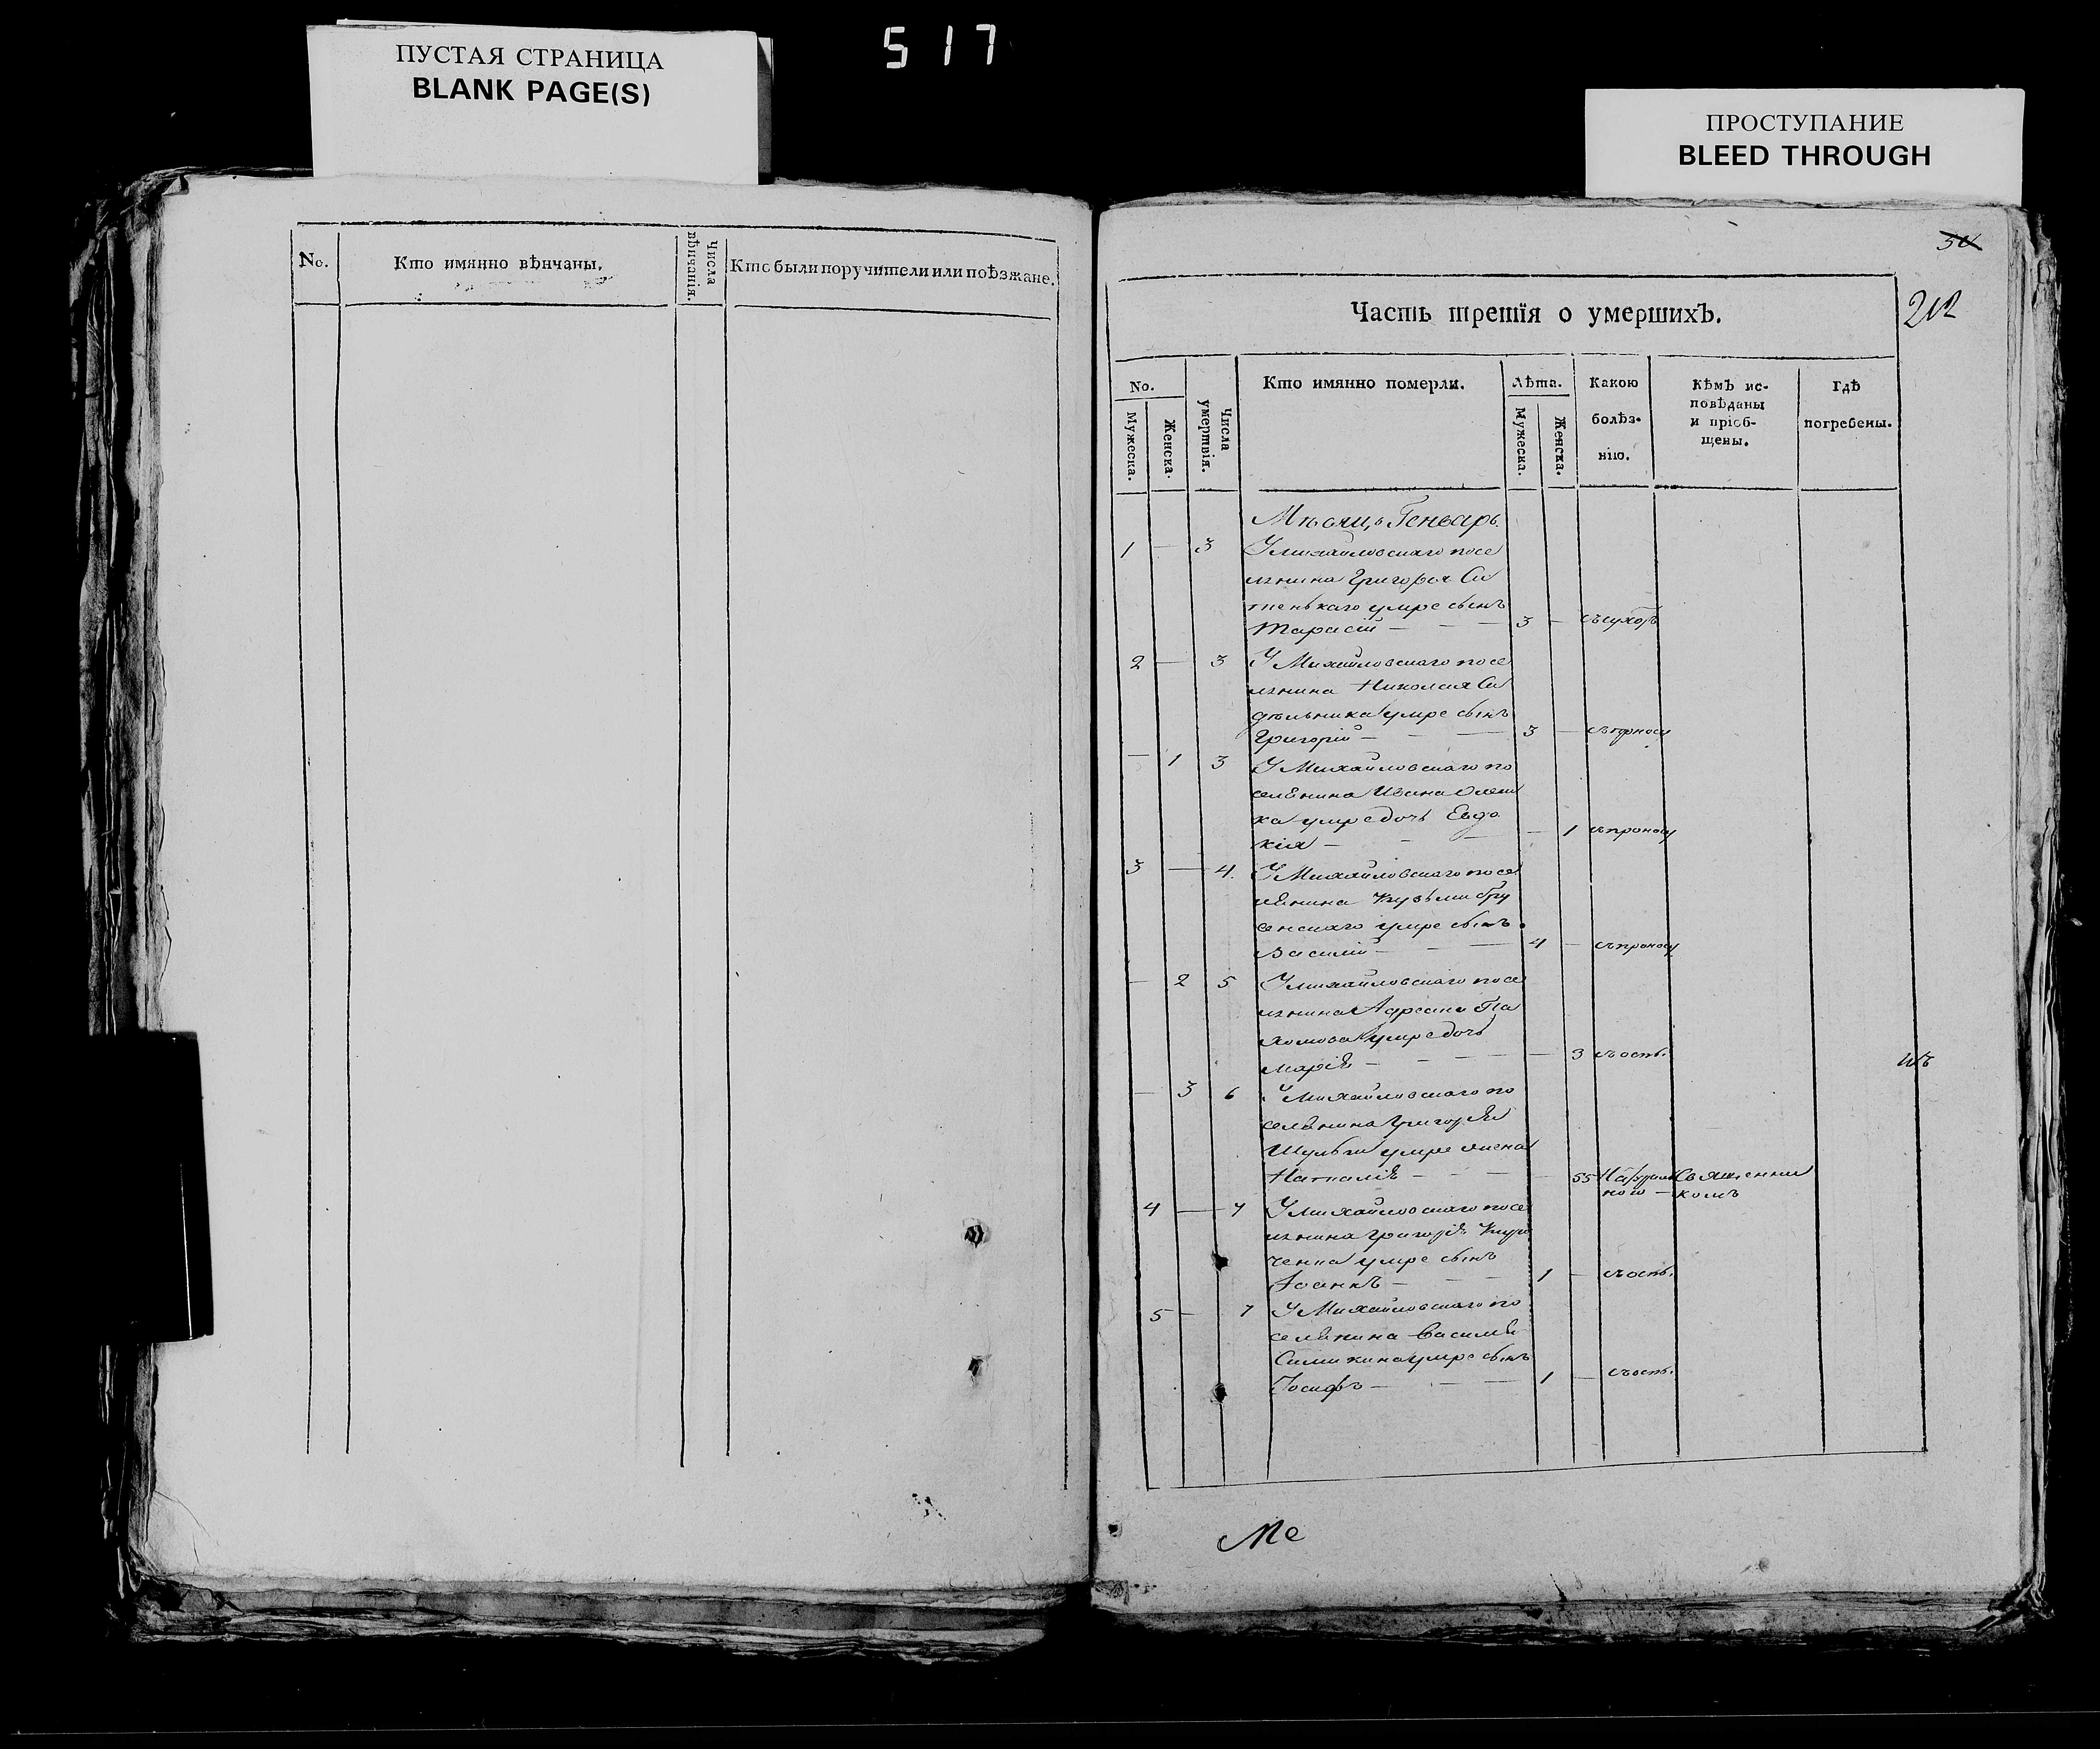 ПУСТАЯ СТРАНИЦА
BLANK PAGE(S)
517
ПРОСТУПАНИЕ
BLEED THROUGH
No.
Кто имянно вѣнчаны.
Числа вѣнчанія.
Кто были поручители или поѣзжане.
212
Часть третія о умершихъ.
No.
Мужеска.
Женска.
Числа умертвія.
Кто имянно померли.
Лѣта.
Мужеска.
Женска.
Какою
болѣз-
нію.
Кѣмъ ис-
повѣданы
и пріоб-
щены.
Гдѣ
погребены.
Мѣсяцъ Генварь
1 — 3 У михайловскаго посе
лянина Григорія Си
тенькаго умре сынъ
Тарасій — 3 —
2 — 3 У Михайловскаго посе
лянина Николая Си
дѣльника умре сынъ
Григорій — 3 —
— 1 3 У Михайловскаго по
селянина Ивана
ка умре дочь Евдо
кія — — 1 съ проносу
3 — 4. У Михайловскаго посе
лянина Кузьмы
сенскаго умре сынъ
Василій — 4 — съ проносу
— 2 5 У михайловскаго посе
лянина Па
хомова умре дочь
марія — — 3 съ оспы.
— 3 6 У михайловскаго по
селянина Григорія
Шульги умре жена
Наталія — — 55 Священни
комъ
4 — 7 У михайловскаго посе
лянина григорія
ченка умре сынъ
Іоаннъ — 1 — съ оспы.
5 — 7 У Михайловскаго по
селянина Василія
умре сынъ
Іосифъ — 1 — съ оспы.
Ме